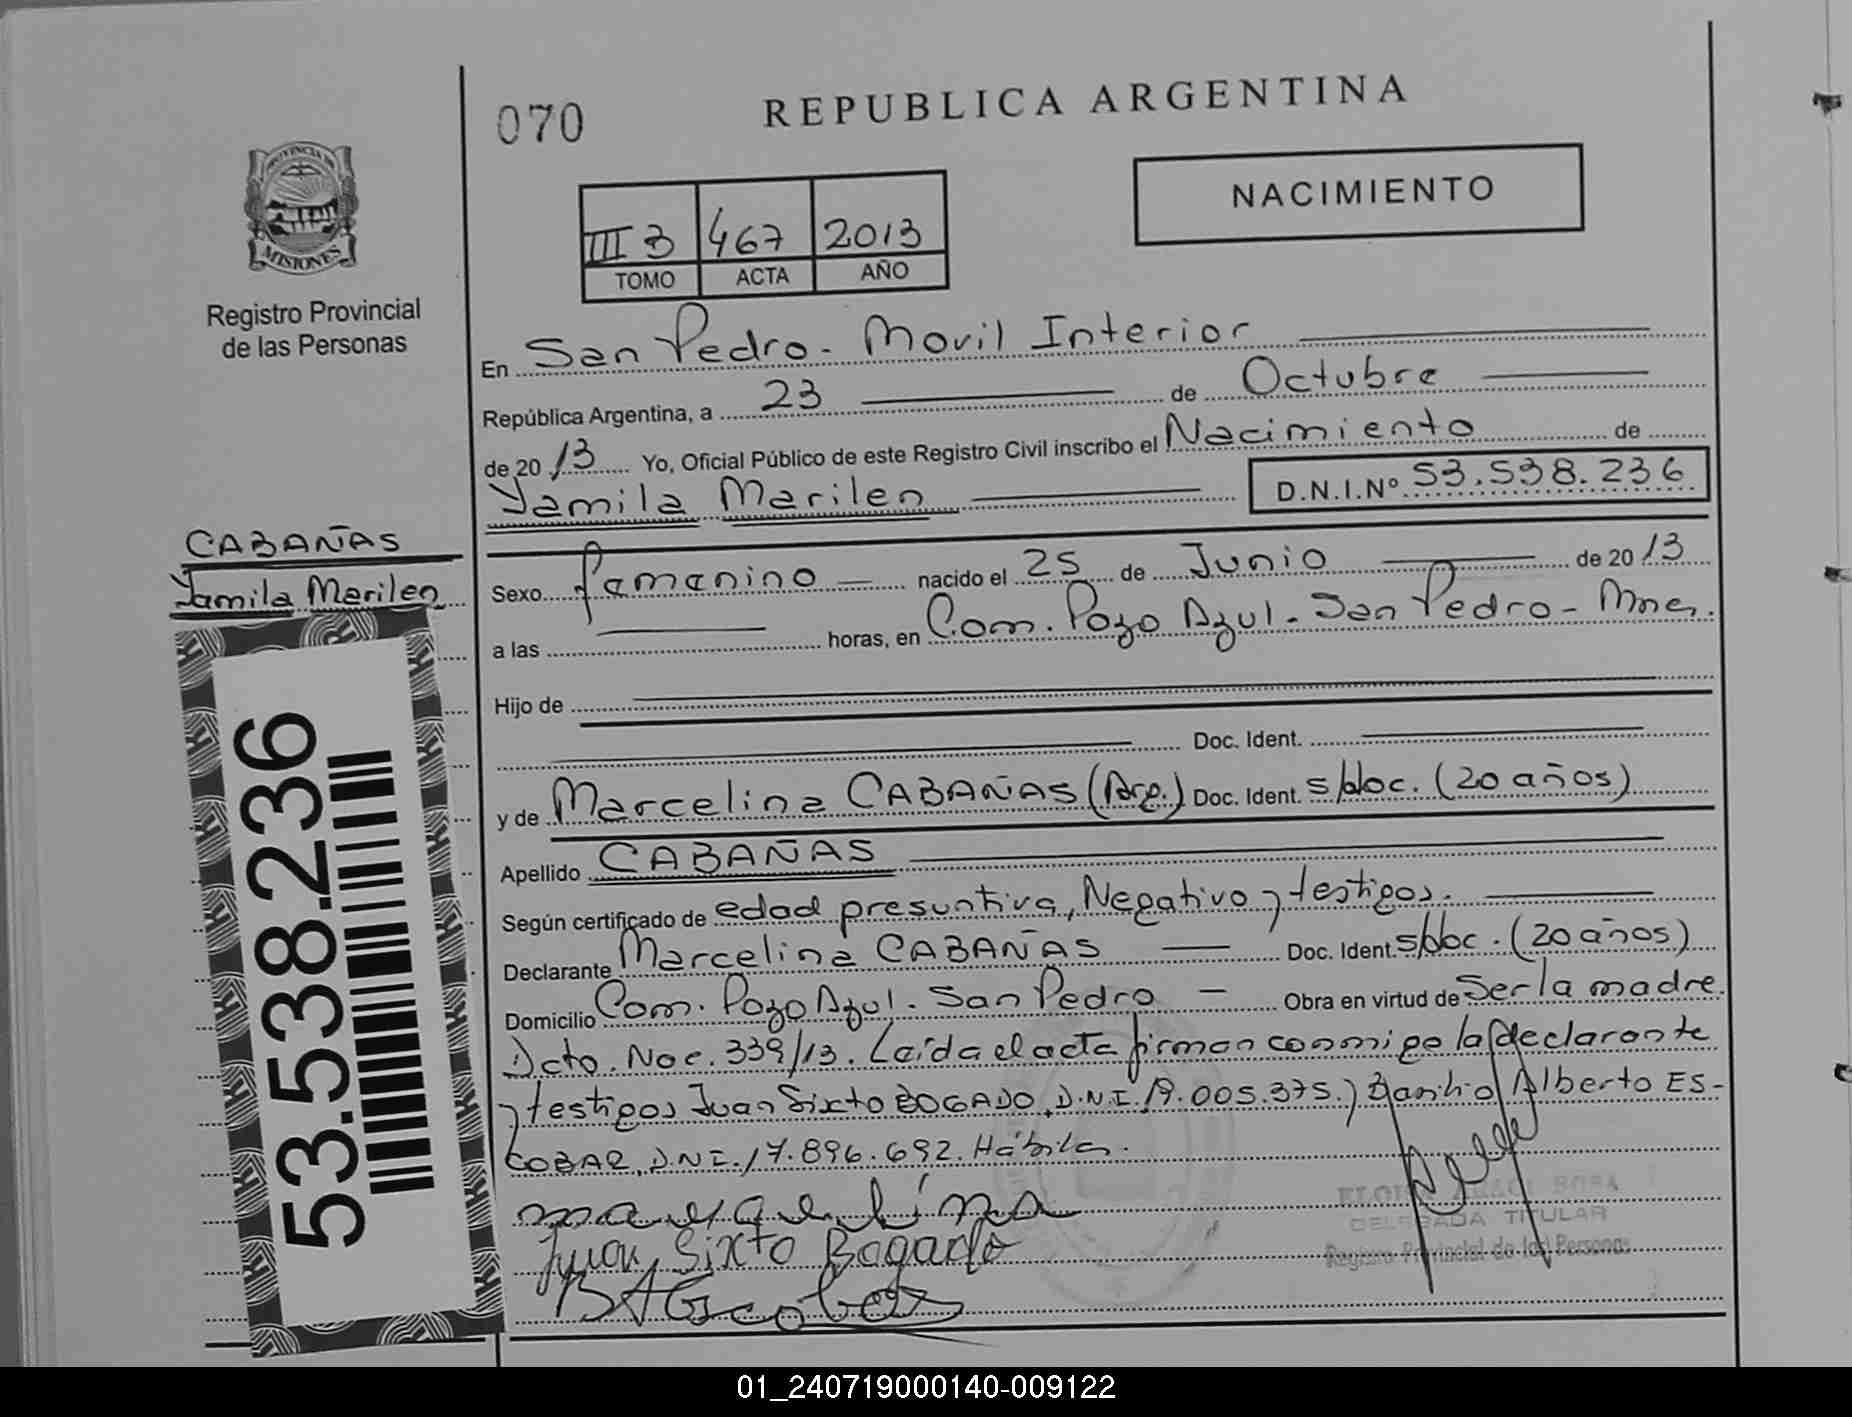 070
REPUBLICA ARGENTINA
PROVINCIA DE
MISIONES
Registro Provincial
de las Personas
NACIMIENTO
III B 467 2013
TOMO ACTA AÑO
En San Pedro - Movil Interior
República Argentina, a 23 de Octubre
de 2013 Yo, Oficial Público de este Registro Civil inscribo el Nacimiento de
Yamila Marilen D.N.I.Nº 53.538.236
CABAÑAS
Yamila Marilen
Sexo femenino nacido el 25 de Junio de 2013
a las horas, en Com. Pozo Azul - San Pedro - Mnes.
Hijo de
Doc. Ident.
y de Marcelina CABAÑAS (Arg.) Doc. Ident. s/doc. (20 años)
Apellido CABAÑAS
Según certificado de edad presuntiva, Negativo y testigos.
Declarante Marcelina CABAÑAS Doc. Ident. s/doc. (20 años)
Domicilio Com. Pozo Azul - San Pedro - Obra en virtud de Ser la madre
Dcto. Nac. 339/13. Leída el acta firman conmigo la declarante
y testigos Juan Sixto BOGADO, D.N.I. 19.005.375 y Basilio Alberto ES-
COBAR, D.N.I. 17.896.692. Hábiles.
Juan Sixto Bogado
DELEGADA TITULAR
Registro Provincial de las Personas
53.538.236
01_240719000140-009122